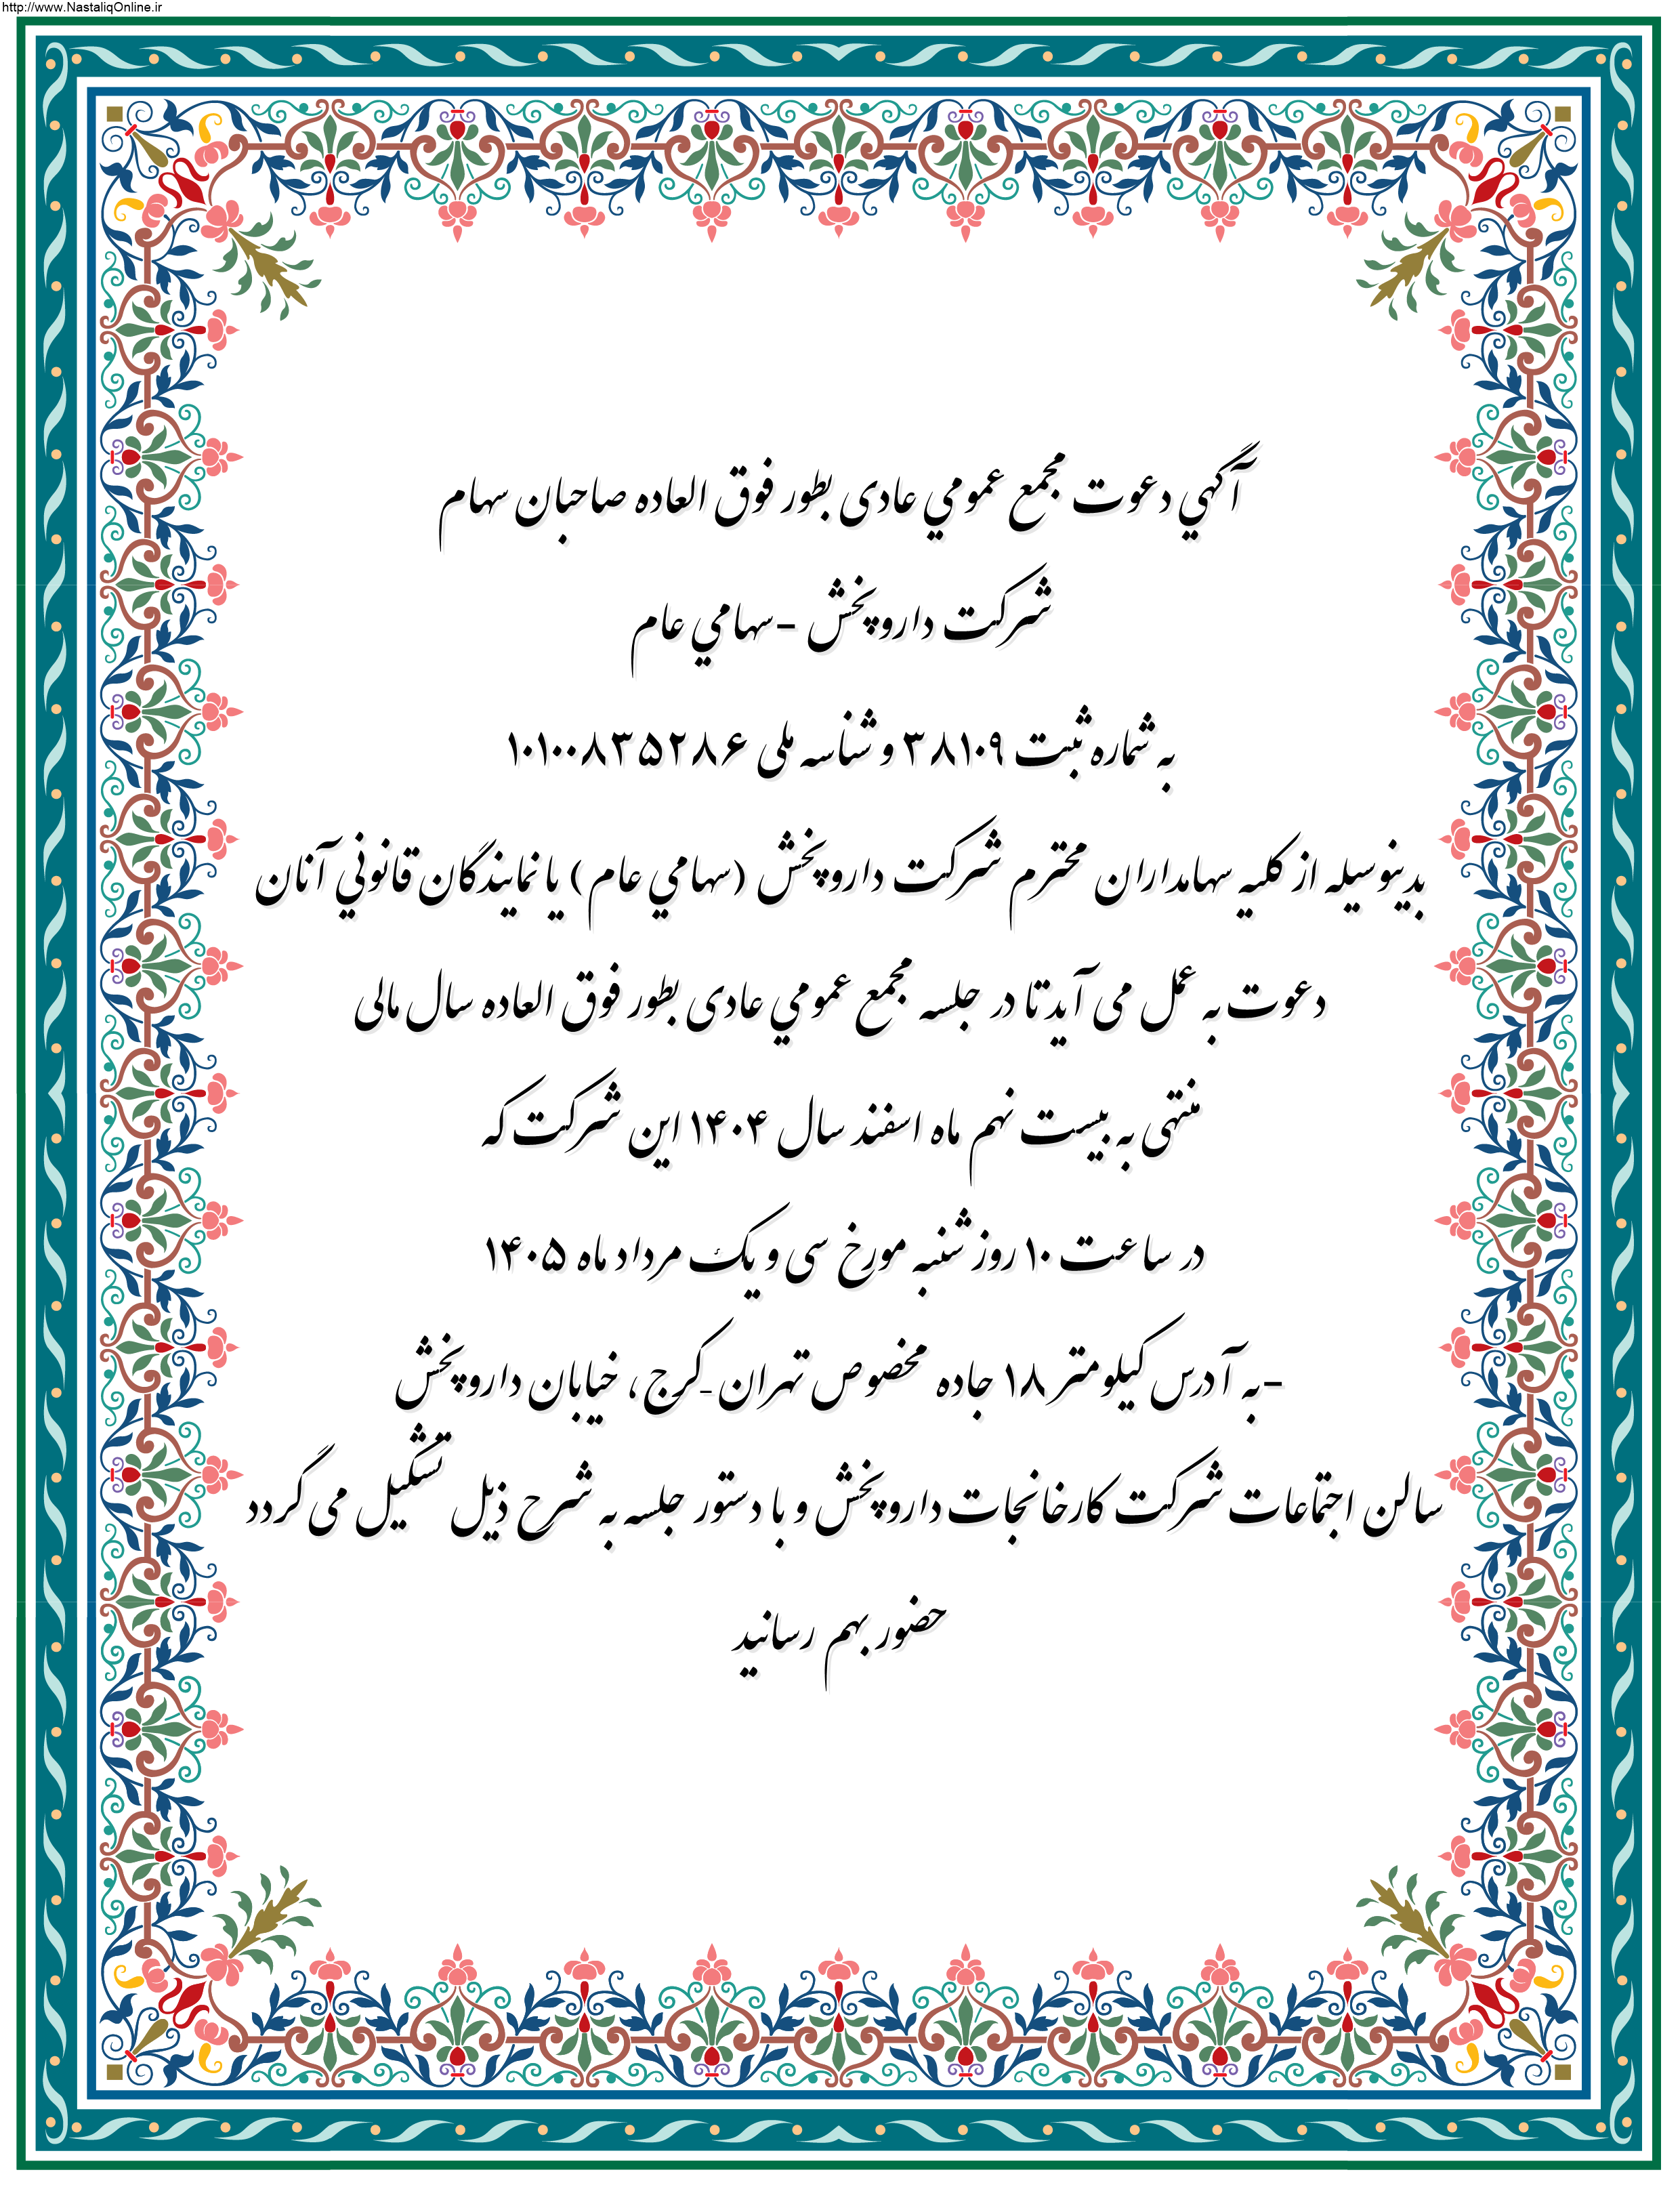 http://www.NastaliqOnline.ir
آگهي دعوت مجمع عمومي عادی بطور فوق العاده صاحبان سهام
شرکت داروپخش -سهامي عام
به شماره ثبت ۳۸۱۰۹ و شناسه ملی ۱۰۱۰۰۸۳۵۲۸۶
بدینوسیله از کلیه سهامداران محترم شرکت داروپخش (سهامي عام) یا نمایندگان قانوني آنان
دعوت به عمل می آید تا در جلسه مجمع عمومي عادی بطور فوق العاده سال مالی
منتهی به بیست نهم ماه اسفند سال ۱۴۰۴ این شرکت که
در ساعت ۱۰ روز شنبه مورخ سی و یک مرداد ماه ۱۴۰۵
-به آدرس کیلومتر ۱۸ جاده مخصوص تهران-کرج، خیابان داروپخش
سالن اجتماعات شرکت کارخانجات داروپخش و با دستور جلسه به شرح ذیل تشکیل می گردد
حضور بهم رسانید